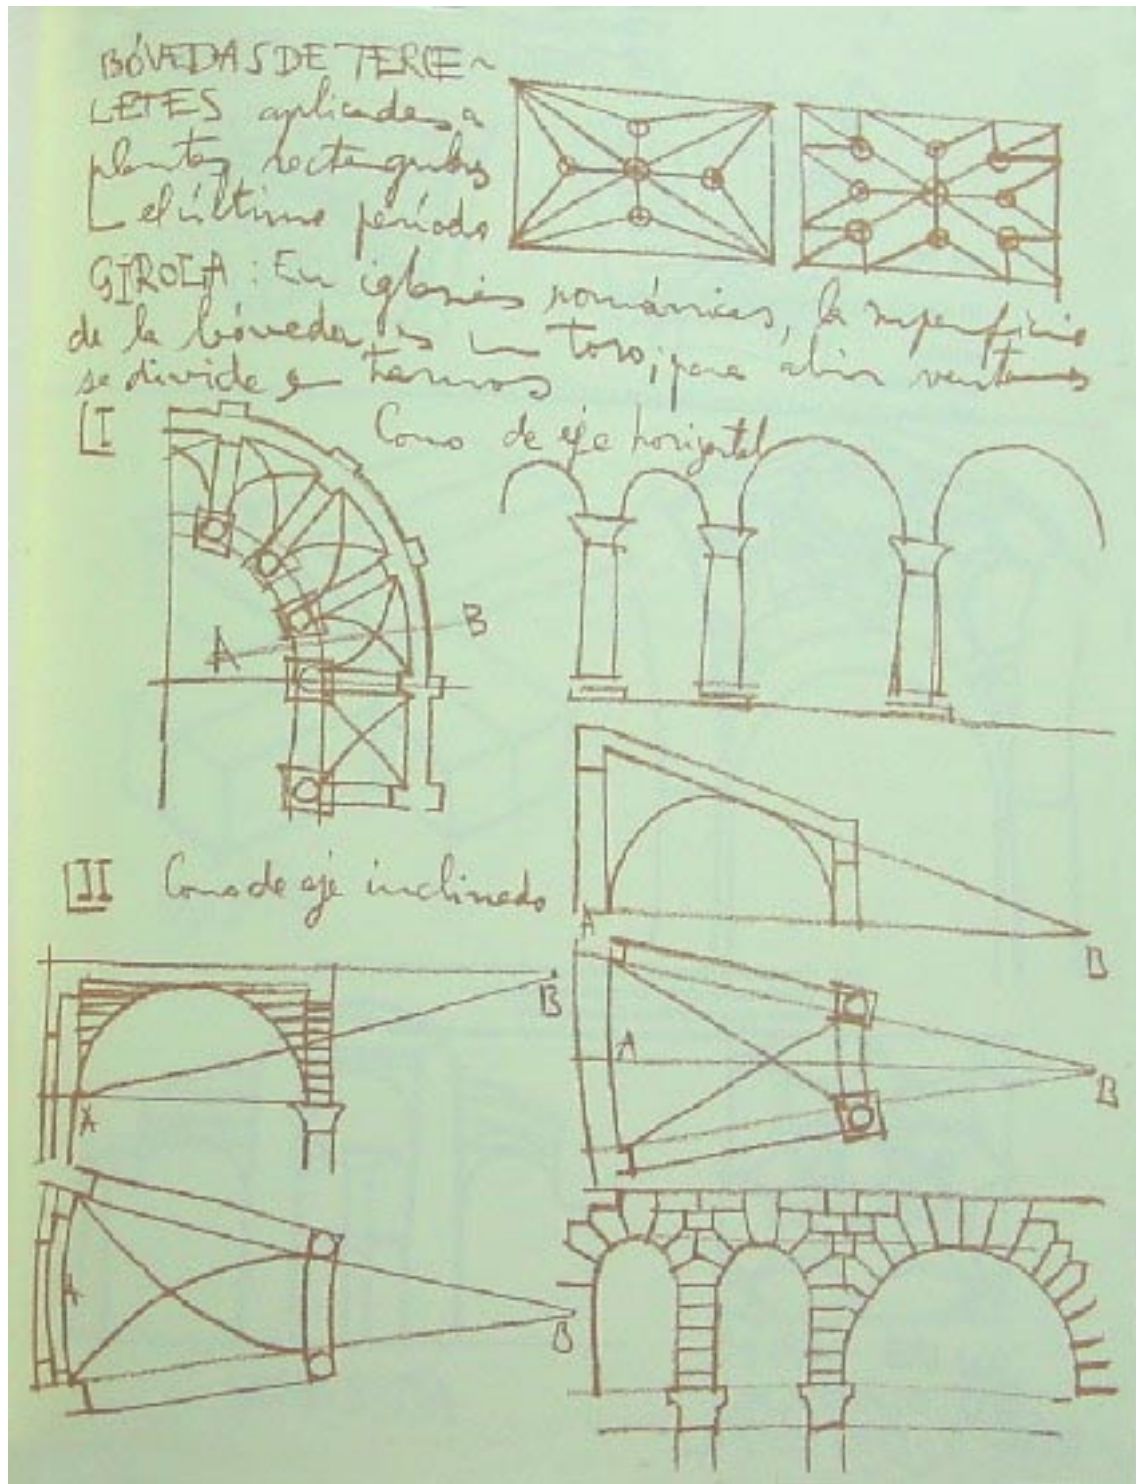 BÓVEDAS DE TERCE~
LETES aplicadas a
plantas rectangulares
el último período
GIROLA: En iglesias románicas, la superficie
de la bóveda es un toro; para abrir ventanas
se divide en tramos
I Cono de eje horizontal
A
B
II Cono de eje inclinado
A
B
B
A
A
B
B
A
B